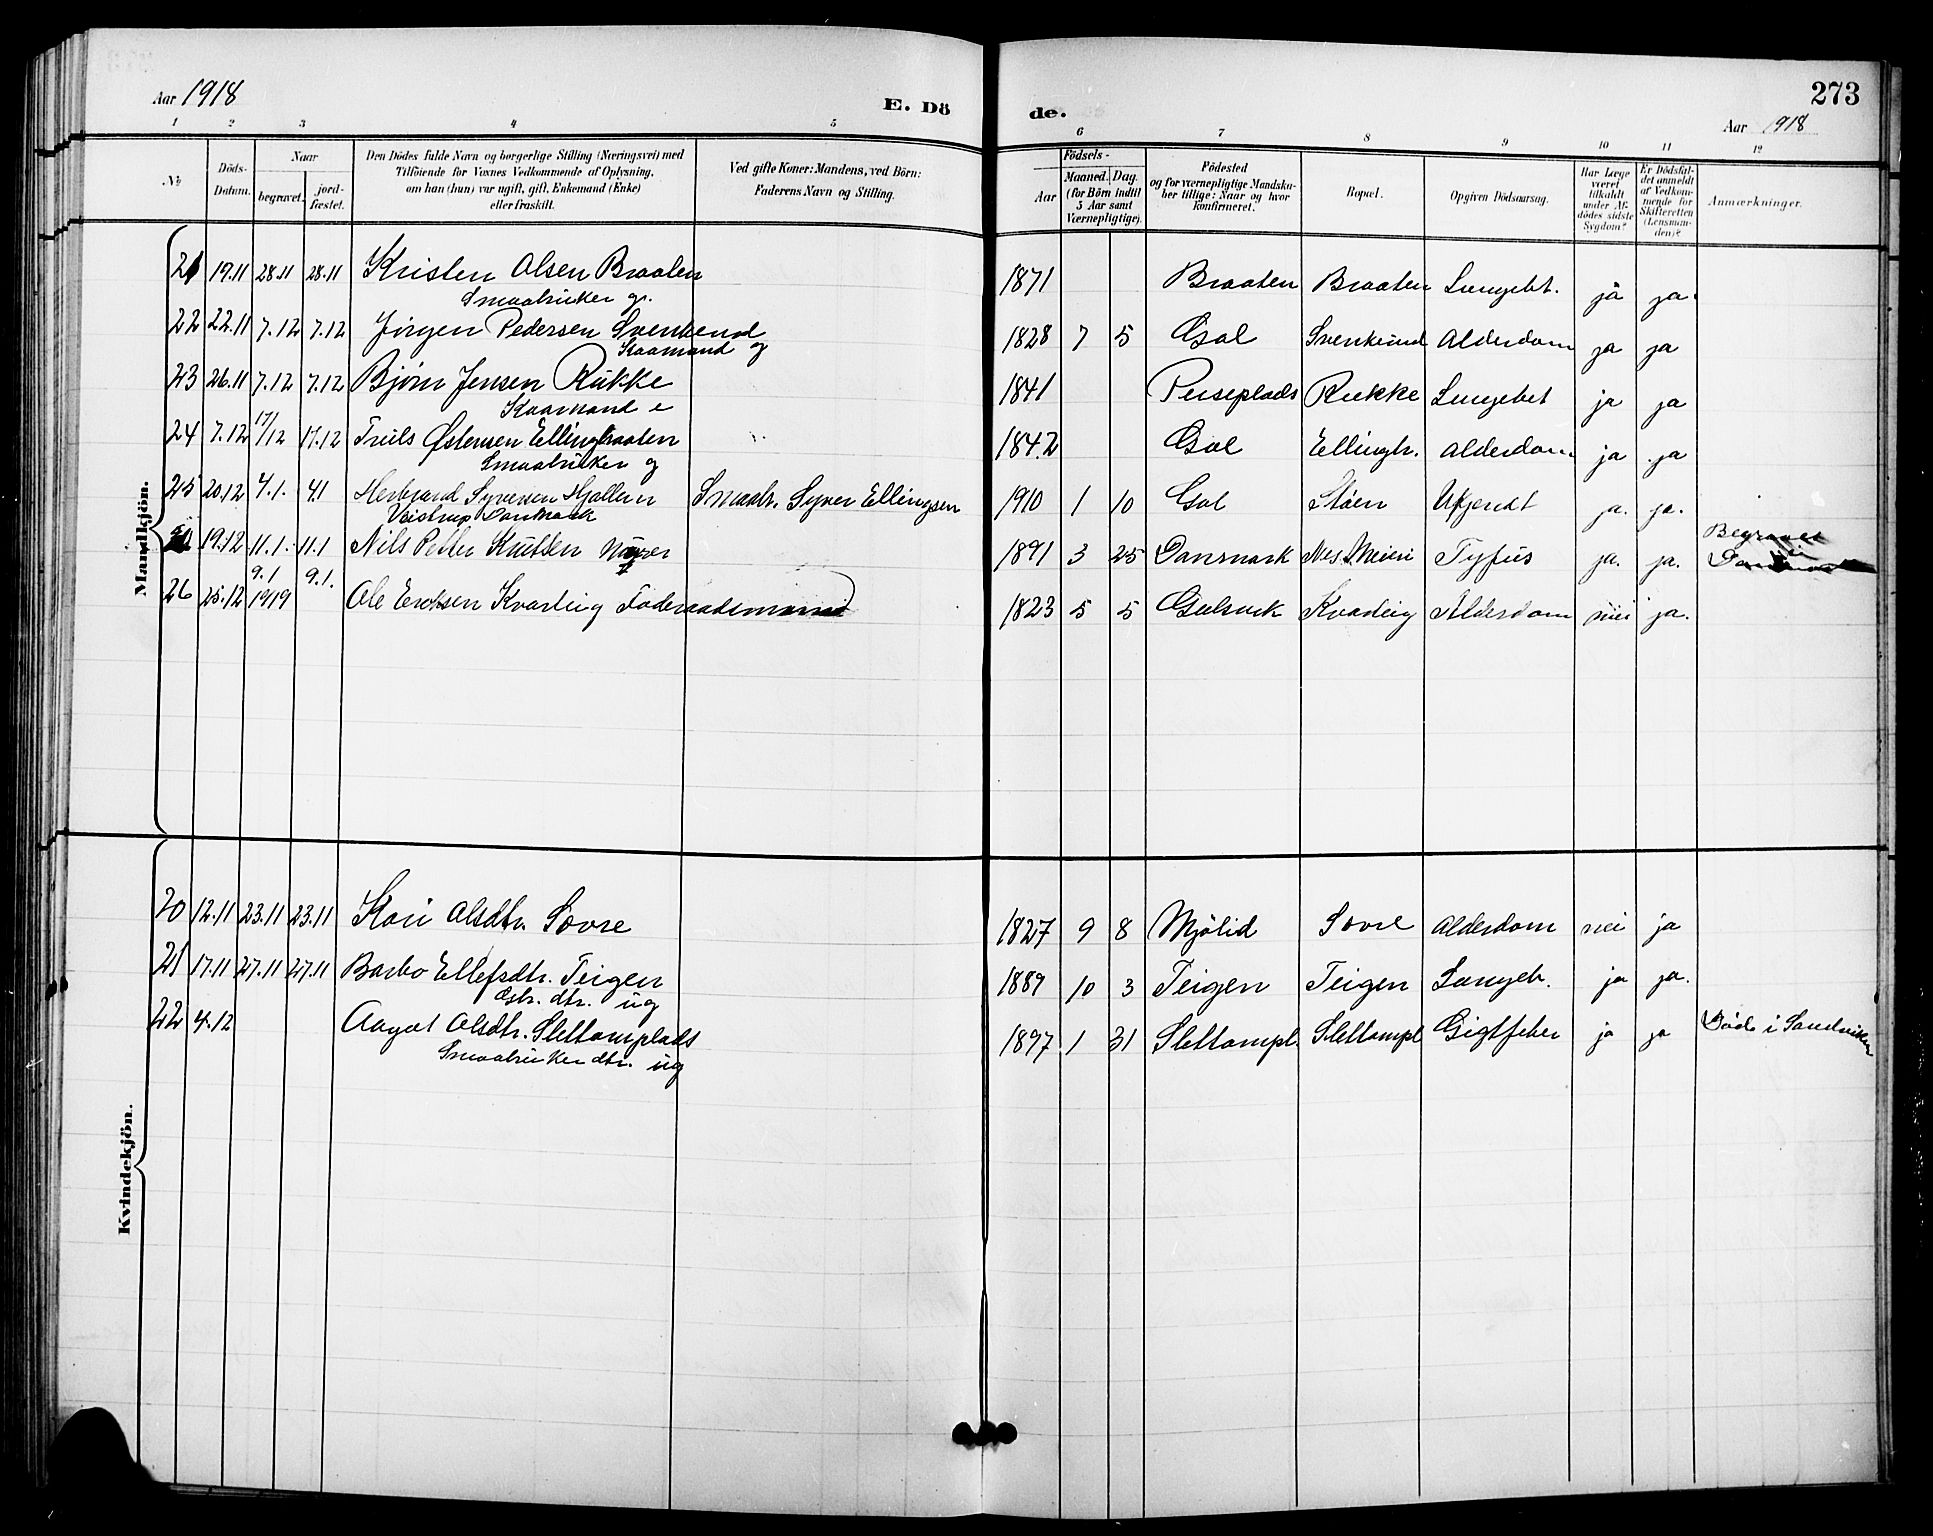 Aar 1918
E. Dö
de.
273
Aar 1918
1 2 3 4 5 6 7 8 9 10 11 12
No
Döds-Datum.
Naar
begravet.
jord-fæstet.
Den Dödes fulde Navn og borgerlige Stilling (Næringsvei) med
Tilföiende for Voxnes Vedkommende af Oplysning,
om han (hun) var ugift, gift, Enkemand (Enke)
eller fraskilt.
Ved gifte Koner: Mandens, ved Börn:
Faderens Navn og Stilling.
Födsels-
Aar
Maaned. Dag.
(for Börn indtil
5 Aar samt
Værnepligtige).
Födested
og for værnepligtige Mandska-
ber tillige: Naar og hvor
konfirmeret.
Bopæl.
Opgiven Dödsaarsag.
Har Læge
været
tilkaldt
under Af-
dödes sidste
Sygdom?
Er Dödsfal-
det anmeldt
af Vedkom-
mende for
Skifteretten
(Lensman-
den)?
Anmærkninger.
Mandkjön.
21 19.11 28.11 28.11 Kristen Olsen Braaten 1871 Braaten Braaten Lungebt. ja ja.
Smaabruker g.
22 22.11 7.12 7.12 Jörgen Pedersen Svenkerud 1828 7 5 Gol Svenkerud Alderdom ja ja
Kaarmand g
23 26.11 7.12 7.12 Bjørn Jensen Rukke 1841 Perseplads Rukke Lungebet ja ja
Kaarmand e
24 7.12 17/12 17.12 Truls Østensen Ellingbraaten 1842 Gol Ellingbr. Alderdom ja ja
Smaabruker g
25 20.12 4.1. 4.1 Herbrand Syversen Hjallen Smaabr. Syver Ellingsen 1910 1 10 Gol Støen Ukjendt ja. ja.
Veistrup Danmark
19.12 11.1. 11.1 Nils Peter Knudsen 1891 3 25 Danmark Nes Meieri Tyfus ja. ja. Begravet i
26 25.12 9.1 1919 9.1. Ole Eriksen Kvarteig Føderaadsmand 1823 5 5 Gulsvik Kvarteig Alderdom nei ja.
Kvindekjön.
20 12.11 23.11 23.11 Kari Olsdtr. Sovre 1827 9 8 Mjølid Sovre Alderdom nei ja
21 17.11 27.11 27.11 Barbo Ellefsdtr. Teigen 1889 10 3 Teigen Teigen Lungeb. ja ja.
Gbr. dtr. ug
22 4.12 Aagot Olsdtr. Slettomplads 1897 1 31 Slettompl. Slettompl Gigtfeber ja ja Död i Sandviken
Smaabruker dtr. ug